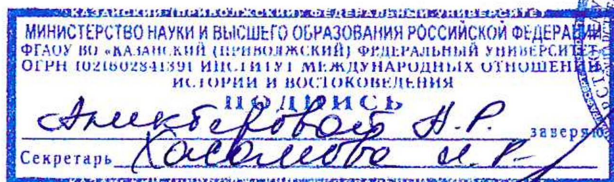 КАЗАНСКИЙ (ПРИВОЛЖСКИЙ) ФЕДЕРАЛЬНЫЙ УНИВЕРСИТЕТ
МИНИСТЕРСТВО НАУКИ И ВЫСШЕГО ОБРАЗОВАНИЯ РОССИЙСКОЙ ФЕДЕРАЦИИ
ФГАОУ ВО «КАЗАНСКИЙ (ПРИВОЛЖСКИЙ) ФЕДЕРАЛЬНЫЙ УНИВЕРСИТЕТ»
ОГРН 1021602841391 ИНСТИТУТ МЕЖДУНАРОДНЫХ ОТНОШЕНИЙ
ИСТОРИИ И ВОСТОКОВЕДЕНИЯ
ПОДПИСЬ
А.Р. заверяю
Секретарь